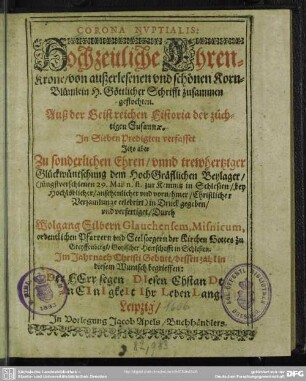 CORONA NVPTIALIS:
Hochzeitliche Ehren-
Krone/von außerlesenen vnd schönen Korn-
Blümlein H. Göttlicher Schrifft zusammen
geflochten.
Auß der Geistreichen Historia der züch-
tigen Susannæ.
In Sieben Predigten verfasset
Jetzt aber
Zu sonderlichen Ehren/ vnnd trewhertziger
Glückwüntschung dem HochGräfflichen Beylager/
20. Maii n. st. zur in Schlesien/ bey
Hochlöblicher/ ansehenlicher vnd vornehmer/ Christlicher
Versamlung celebrirt) in Druck gegeben/
vnd verfertiget/ Durch
Wolgang Silbern
ordentlichen Pfarrern vnd Seelsorgern der Kirchen Gottes zu
Herrschafft in Schlesien.
Im Jahr nach Christi Geburt/ dessen zahl in
diesem Wuntsch begrieffen:
Der HErr segen DIesen Ehstan D
EInIgkeIt Ihr Leben Lang.
Leipzig/
In Verlegung Jacob Apels/ Buchhändlers.